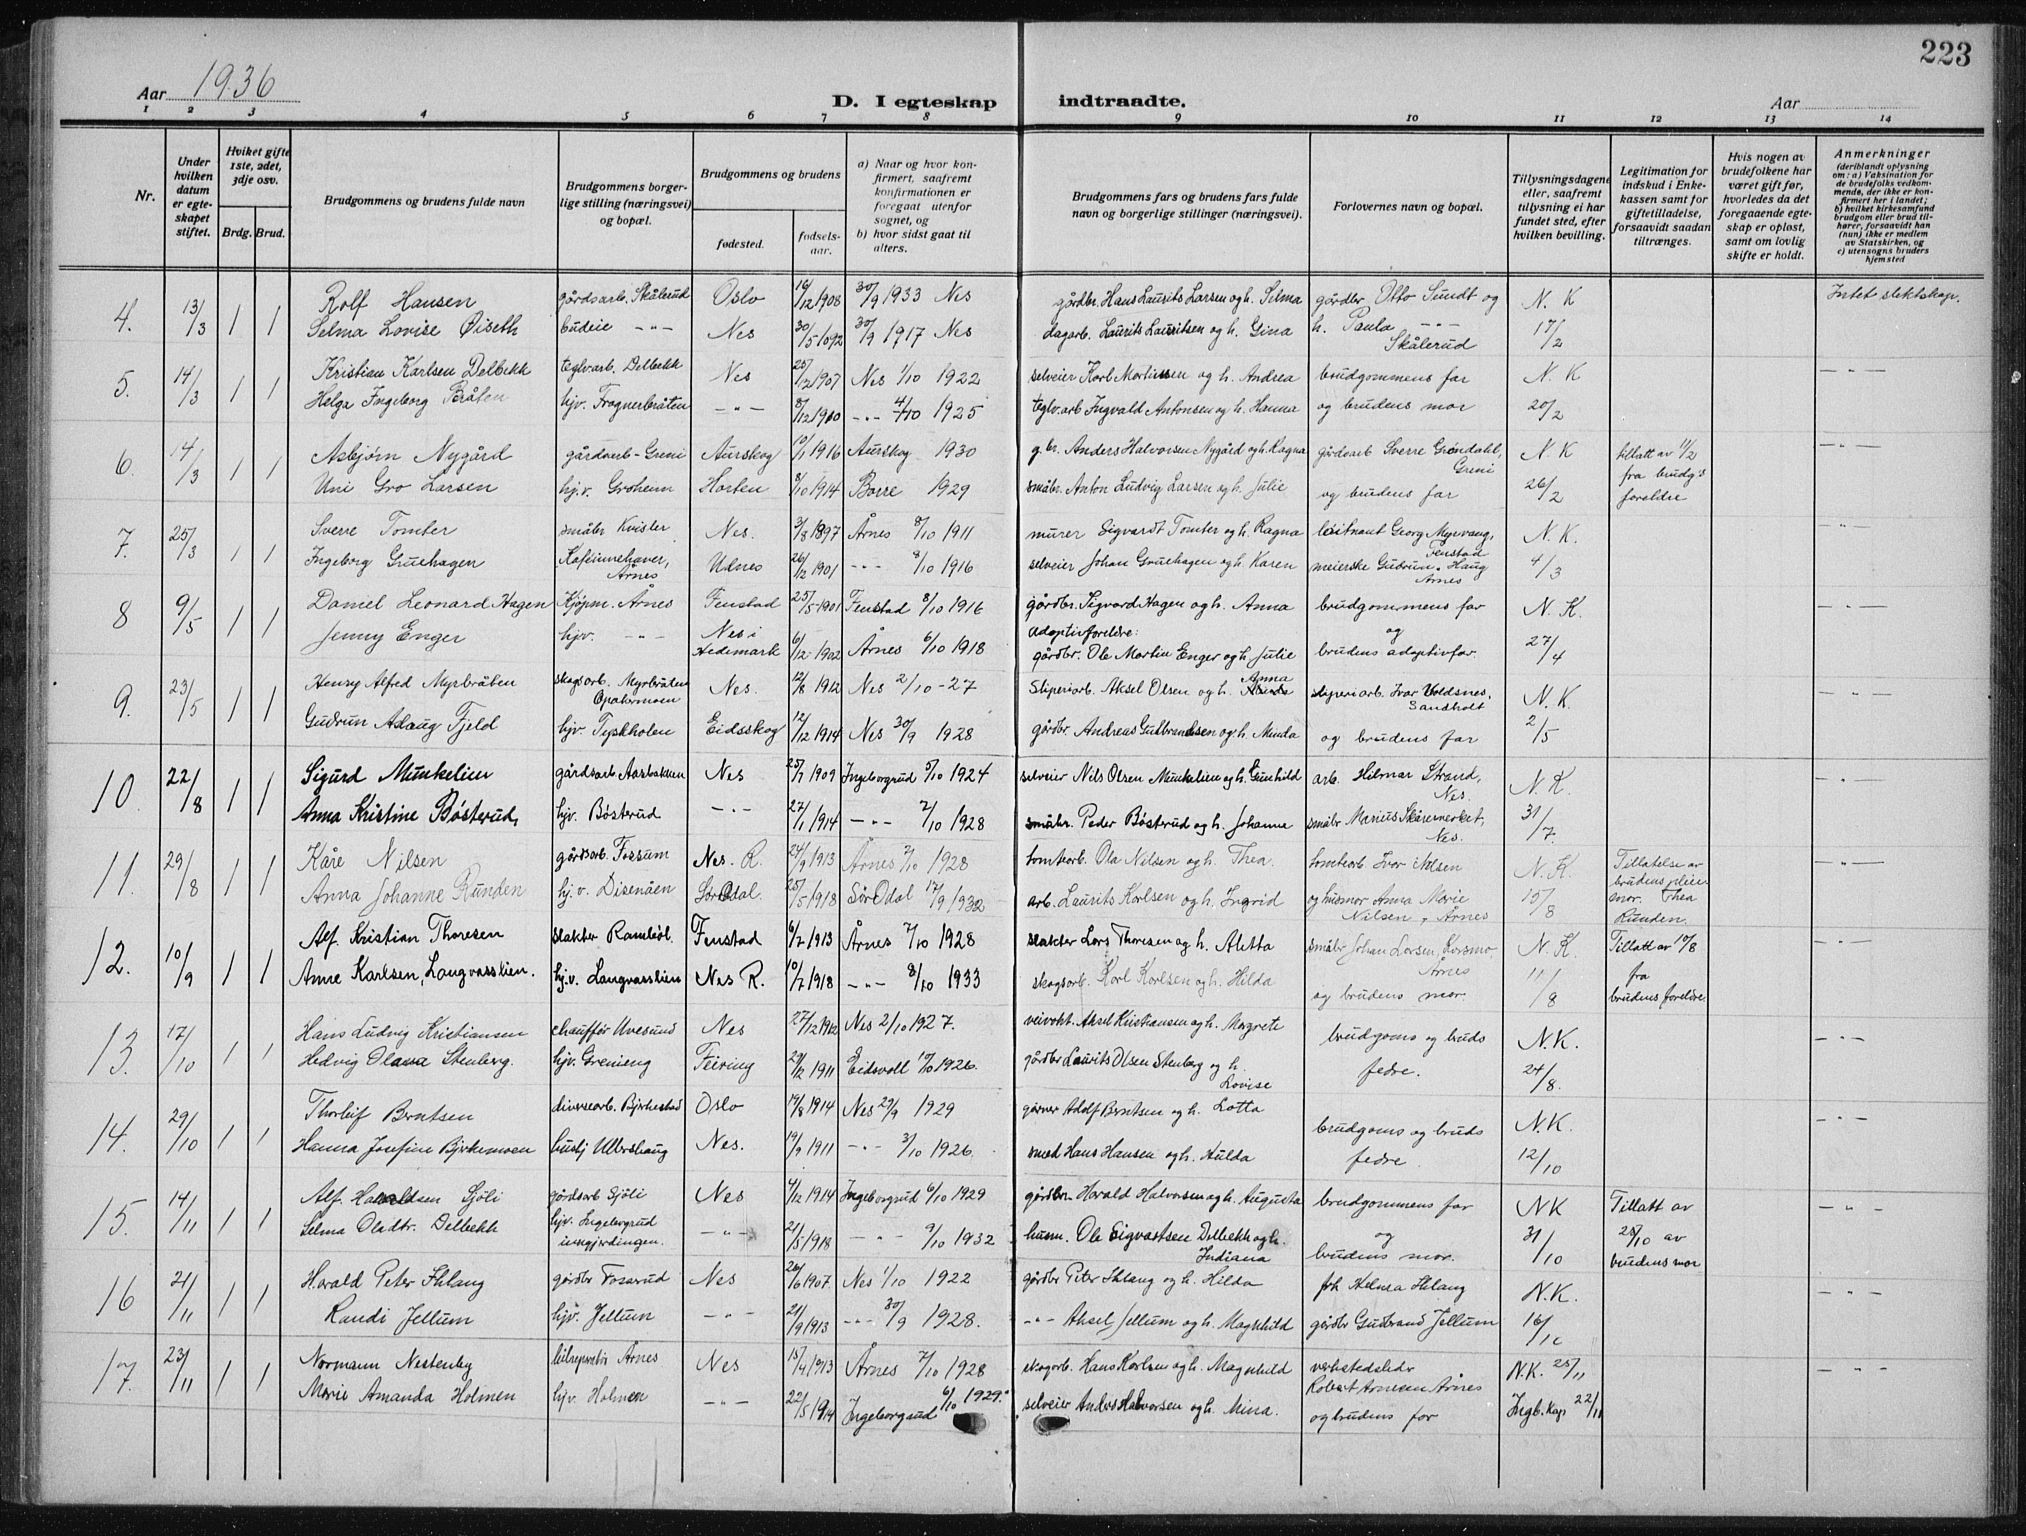 223
Aar 1936
D. I egteskap indtraadte.
Aar
1 2 3 4 5 6 7 8 9 10 11 12 13 14
Nr.
Under hvilken datum er egteskapet stiftet.
Hviket gifte 1ste, 2det, 3dje osv.
Brdg. Brud.
Brudgommens og brudens fulde navn
Brudgommens borgerlige stilling (næringsvei) og bopæl.
Brudgommens og brudens
fødested.
fødselsaar.
a) Naar og hvor konfirmert, saafremt konfirmationen er foregaat utenfor sognet, og
b) hvor sidst gaat til alters.
Brudgommens fars og brudens fars fulde navn og borgerlige stillinger (næringsvei).
Forlovernes navn og bopæl.
Tillysningsdagene eller, saafremt tillysning ei har fundet sted, efter hvilken bevilling.
Legitimation for indskud i Enkekassen samt for giftetilladelse, forsaavidt saadan tiltrænges.
Hvis nogen av brudefolkene har været gift før, hvorledes da det foregaaende egteskap er opløst, samt om lovlig skifte er holdt.
Anmerkninger
(deriblandt oplysning om: a) Vaksination for de brudefolks vedkommende, der ikke er konfirmert her i landet; b) hvilket kirkesamfund brudgom eller brud tilhører, forsaavidt han (hun) ikke er medlem av Statskirken, og c) utensogns bruders hjemsted
4. 13/3 1 1 Rolf Hansen gårdsarb. Skålerud Oslo 16/12 1908 30/9 1933 Nes gårdbr. Hans Laurits Larsen og h. Selma gårdbr Otto Sundt og N. K Intet slektskap.
Selma Lovise Øiseth budeie -"- Nes 30/5 30/9 1917 Nes dagarb. Laurits Lauritsen og h. Gina h. Paula -"- Skålerud 17/2
5. 14/3 1 1 Kristian Karlsen Delbekk teglvarb. Delbekk Nes 25/12 1907 Nes 1/10 1922 selveier Karl Martinsen og h. Andrea brudgommens far N. K -"-
Helga Ingeborg Bråten hjv. Frognerbråten -"- 8/12 1910 -"- 4/10 1925 teglv.arb Ingvald Antonsen og h. Hanna og brudens mor 20/2
6. 14/3 1 1 Asbjørn Nygård gårdsarb - Greni Aurskog 10/1 1916 Aurskog 1930 g.br. Anders Halvorsen Nygård og h. Ragna gårdsarb Sverre Grøndahl, Greni N. K tillatt av 11/2 -"-
Uni Gro Larsen hj.v. Groheim Horten 8/10 1914 Borre 1929 småbr. Anton Ludvig Larsen og h. Julie og brudens far 26/2 fra brudg's foreldre
7. 25/3 1 1 Sverre Tomter småbr Kvisler Nes. 3/8 1897 Årnes 8/10 1911 murer Sigvardt Tomter og h. Ragna løitnant Georg Myrvang, Fenstad N. K. -"-
Ingeborg Gruehagen Kafeinnehaver, Årnes Udnes 26/2 1901 -"- 8/10 1916 selveier Johan Gruehagen og h. Karen meierske Gudrun Haug Årnes 4/3
8 9/5 1 1 Daniel Leonard Hagen Kjøpm. Årnes Fenstad 25/5 1901 Fenstad 8/10 1916 gårdbr. Sigvard Hagen og h. Anna brudgommens far N. K. -"-
Jenny Enger hjv. -"- Nes i Hedemark 6/12 1902 Årnes 6/10 1918 Adoptivforeldre: gårdbr. Ole Martin Enger og h. Julie og brudens adoptivfar. 27/4
9. 23/5 1 1 Henry Alfred Myrbråten skogsarb. Myrbråten Opakermoen Nes. 12/8 1912 Nes 2/10 - 27 Sliperiarb. Aksel Olsen og h. Anna sliperiarb. Ivar Voldsnes, Sandholt N. K. -"-
Gudrun Adaug Fjeld hjv. Tyskholen Eidsskog 12/12 1914 Nes 30/9 1928 gårdbr. Andreas Gulbrandsen og h. Minda og brudens far 2/5
10. 22/8 1 1 Sigurd Munkelien gårdsarb. Aarbakken Nes 25/7 1909 Ingeborgrud 5/10 1924 selveier Nils Olsen Munkelien og h. Gunhild arb. Hilmar Strand, Nes. N. K. -"-
Anna Kristine Bøsterud, hjv. Bøsterud -"- 27/1 1914 -"- 7/10 1928 småbr. Peder Bøsterud og h. Johanne småbr Marius Nes. 31/7.
11. 29/8 1 1 Kåre Nilsen gårdsarb. Fossum Nes. R. 24/9 1913 Årnes 7/10 1928 tomtearb. Ola Nilsen og h. Thea. tomtearb. Ivar Nilsen N. K. Tillatelse av -"-
Anna Johanne Runden hj.v. Disenåen Sør Odal. 25/5 1918 Sør Odal 17/9 1932 arb. Laurits Karlsen og h. Ingrid og husmor Anna Marie Nilsen, Årnes 15/8 brudens pleiemor. Thea Runden.
12. 10/9 1 1 Alf. Kristian Thoresen slakter Ramliol. Fenstad 6/7 1913 Årnes 7/10 1928 slakter Lars Thoresen og h. Aletta småbr Johan Larsen, Korsmo, Årnes N. K. Tillatt av 10/8 -"-
Anne Karlsen, Langvasslien. hj.v. Langvasslien Nes R. 10/7 1918 -"- 8/10 1933 skogsarb. Karl Karlsen og h. Hilda og brudens mor. 11/8 fra brudens foreldre
13. 17/10 1 1 Hans Ludvig Kristiansen chauffør Uvesund Nes 27/12 1912 Nes 2/10 1927. veivokt. Aksel Kristiansen og h. Margrete brudgoms og bruds N. K. -"-
Hedvig Olava Stenberg. hjv. Grenieng Feiring 29/12 1911 Eidsvoll 10/10 1926. gårdbr Laurits Olsen Stenberg og h. Lovise fedre. 24/8.
14. 29/10 1 1 Thorleif Berntsen diversearb. Bjerkestad Oslo 19/8 1914 Nes 29/9 1929 garver Adolf Berntsen og h. Lotta brudgoms og bruds N. K. -"-
Hanna Josefine Bjerkemoen husbj Ullershaug Nes. 19/9 1911 -"- 3/10 1926. smed Hans Hansen og h. Hulda fedre. 12/10
15. 14/11 1 1 Alf. Haraldsen Sjøli gårdsarb Sjøli Nes 4/12 1914 Ingeborgrud 6/10 1929 gårdbr. Harald Halvorsen og h. Augusta brudgommens far N K Tillatt av -"-
Selma Oladtr. Delbekk hjv. Ingeborgrud -"- 21/5 1918 -"- 9/10 1932 husm. Ole Sigvartsen Delbekk og h. Indiana og brudens mor. 31/10 28/10 av brudens mor
16 21/11 1 1 Harald Peter Ihlang gårdbr Fosserud Nes 26/6 1907. Nes 1/10 1922 gårdbr Peter Ihlang og h. Hilda frk Helma Ihlang N. K. -"-
Randi Jellum hjv. Jellum -"- 21/9 1913 -"- 30/9 1928. -"- Aksel Jellum og h. Magnhild gårdbr Gudbrand Jellum 16/10
17. 23/11 1 1 Normann Nestenby bilreparatør Årnes Nes 15/4 1913 Årnes 7/10 1928 skogarb. Hans Karlsen og h. Magnhild verkstedsleder Robert Arnesen Årnes N. K. 25/11 -"-
Marie Amanda Holmen hjv. Holmen -"- 22/5 1914 Ingeborgrud 6/10 1929. selveier Anders Halvorsen og h. Mina. og brudens far Ingb. Kap 22/11